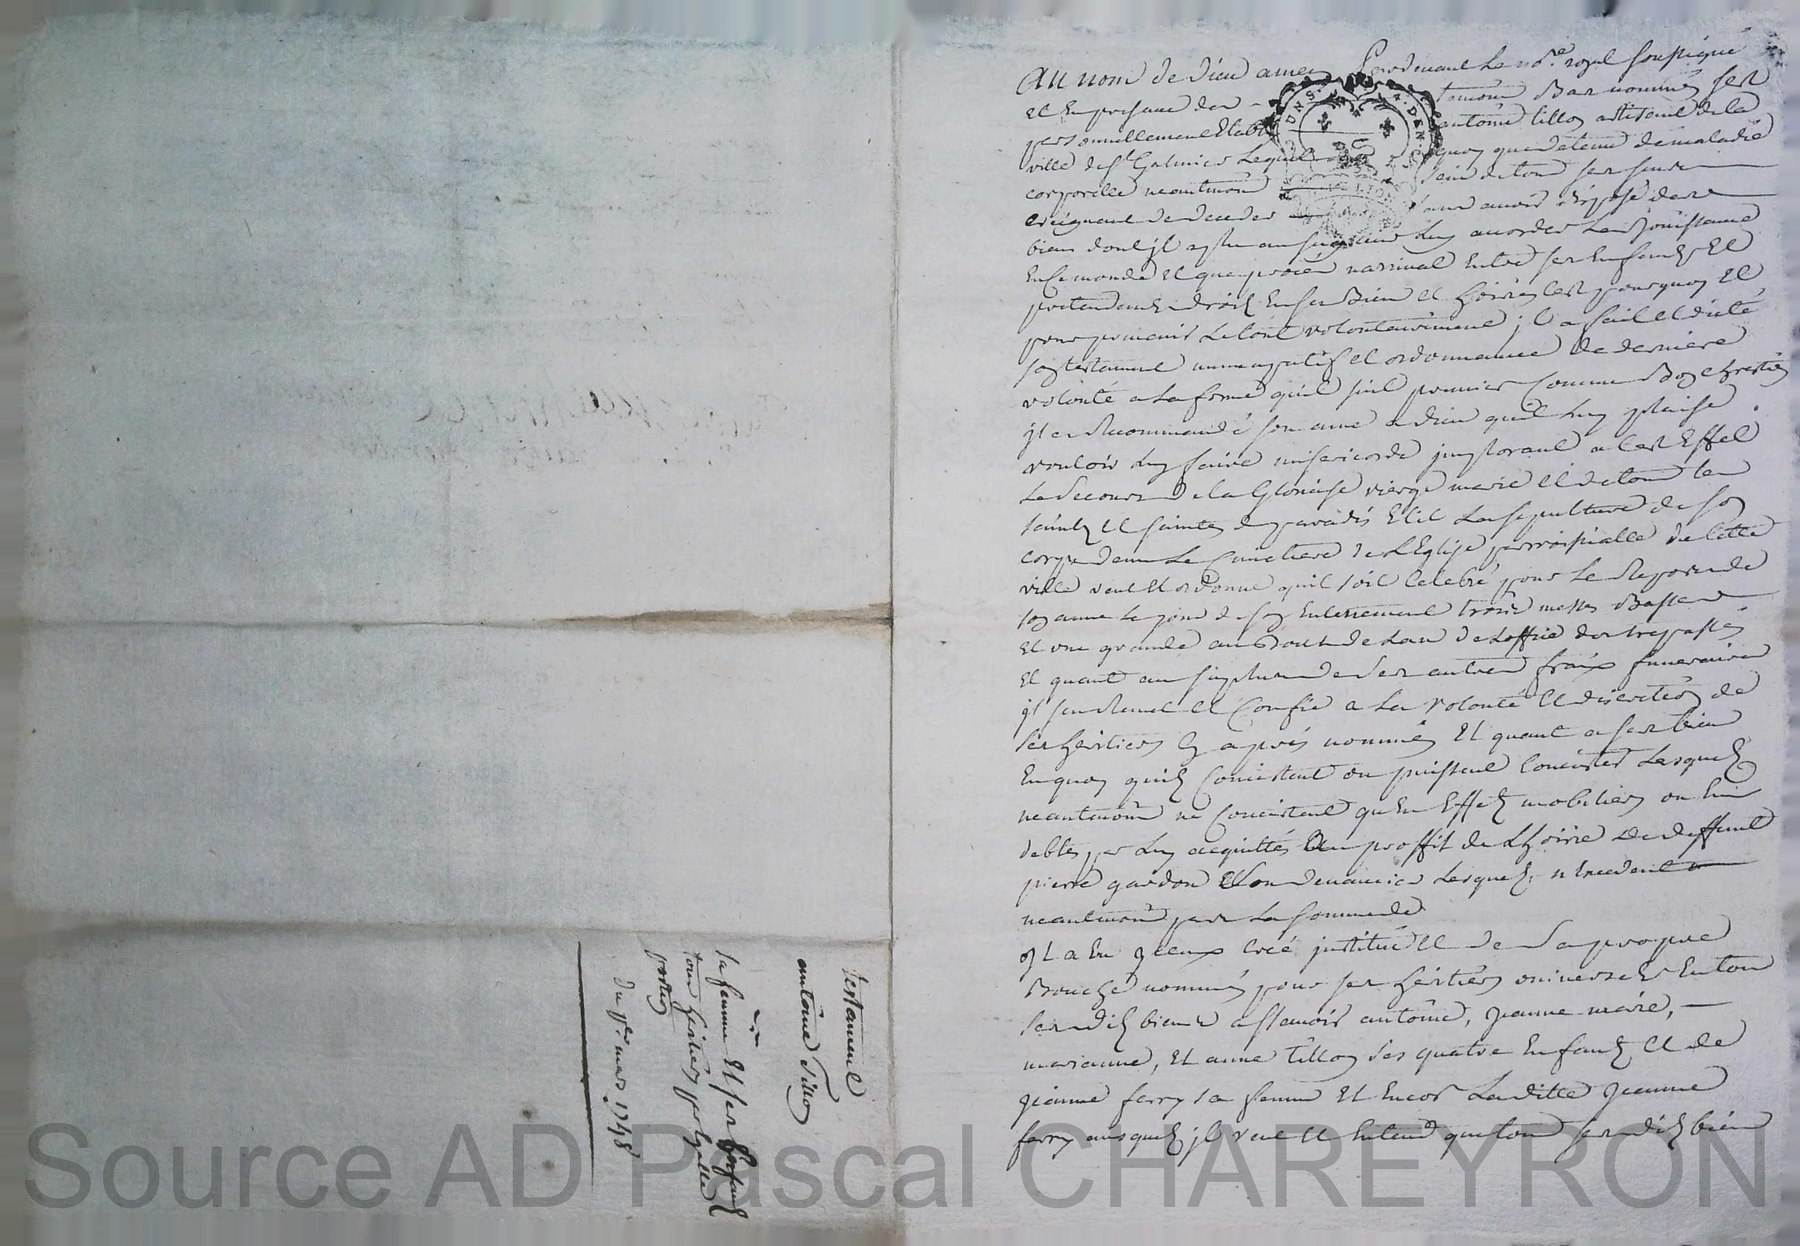 Testament
antoine Tillon
sa femme Et ses Enfans
tous heritiers par egalle
portion
du 11e mars 1748
Au nom de Dieu amen Pardevant Le nore. royal soussigné
et En presence des temoins Bas nommés fut
personnellement Etably antoine tillon artisant de la
ville de St Galmier Lequel quoy que detenu de maladie
corporelle neantmoins sain de tous ses sens
creignant de deceder sans avoir disposé de ses
biens dont il a plu au seigneur luy accorder La Jouissance
En ce monde Et que procès n'arrivat Entre ses Enfants Et
pretendants droits En ses Biens et hoirie c'est pourquoy Et
pour prevenir Le tout volontairement il a fait et dicté
son testament nuncupatif et ordonnance de derniere
volonté a La forme qu'il suit premier Comme Bon chrestien
il a Recommandé son ame a dieu qu'il luy plaise
vouloir luy faire misericorde implorant a cest Effet
Le secours de la Glorieuse vierge marie et de tous les
saints et saintes de paradis Elit La sepulture de son
corps dans Le Cimetiere de L'Eglise parroissialle de cette
ville veut et ordonne qu'il soit Celebré pour Le Repos de
son ame Le jour de son Enterrement trois messes Basses
Et une grande au Bout de L'an de L'office des trepassés
Et quant au surplus de ses autres fraix funeraires
il s'en Remet et Confie a La volonté et discretion de
ses heritiers cy après nommés Et quant a ses biens
En quoy qu'ils Concistent ou puissent Concister Lesquels
neantmoins ne Concistent qu'en Effets mobiliers ou En
debtes par luy acquittés au proffit de L'hoirie de deffunt
pierre gardon Lesquels n'Excedent
neantmoins pas La somme de
il a de sa propre
Bouche nommés pour ses héritiers universels En tous
ses dits biens assavoir antoine, Jeanne marie,
marianne, Et anne tillon ses quatre Enfants et de
Jeanne ferry sa femme Et Encor La ditte Jeanne
ferry ausquels il veut et Entend que tous ses dits biens
Source AD Pascal CHAREYRON